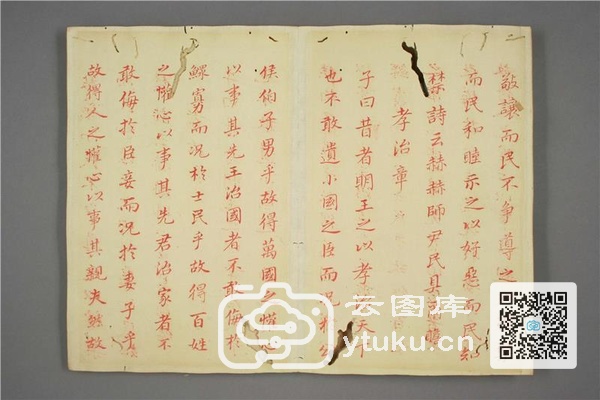 敬讓而民不爭導之
而民和睦示之以好惡而民知
禁詩云赫赫師尹民具
孝治章
子曰昔者明王之以孝 天下
也不敢遺小國之臣而
侯伯子男乎故得萬國之懽心
以事其先王治國者不敢侮於
鰥寡而況於士民乎故得百姓
之懽心以事其先君治家者不
敢侮於臣妾而況於妻子乎
故得人之懽心以事其親夫然故
云图库
ytuku.cn